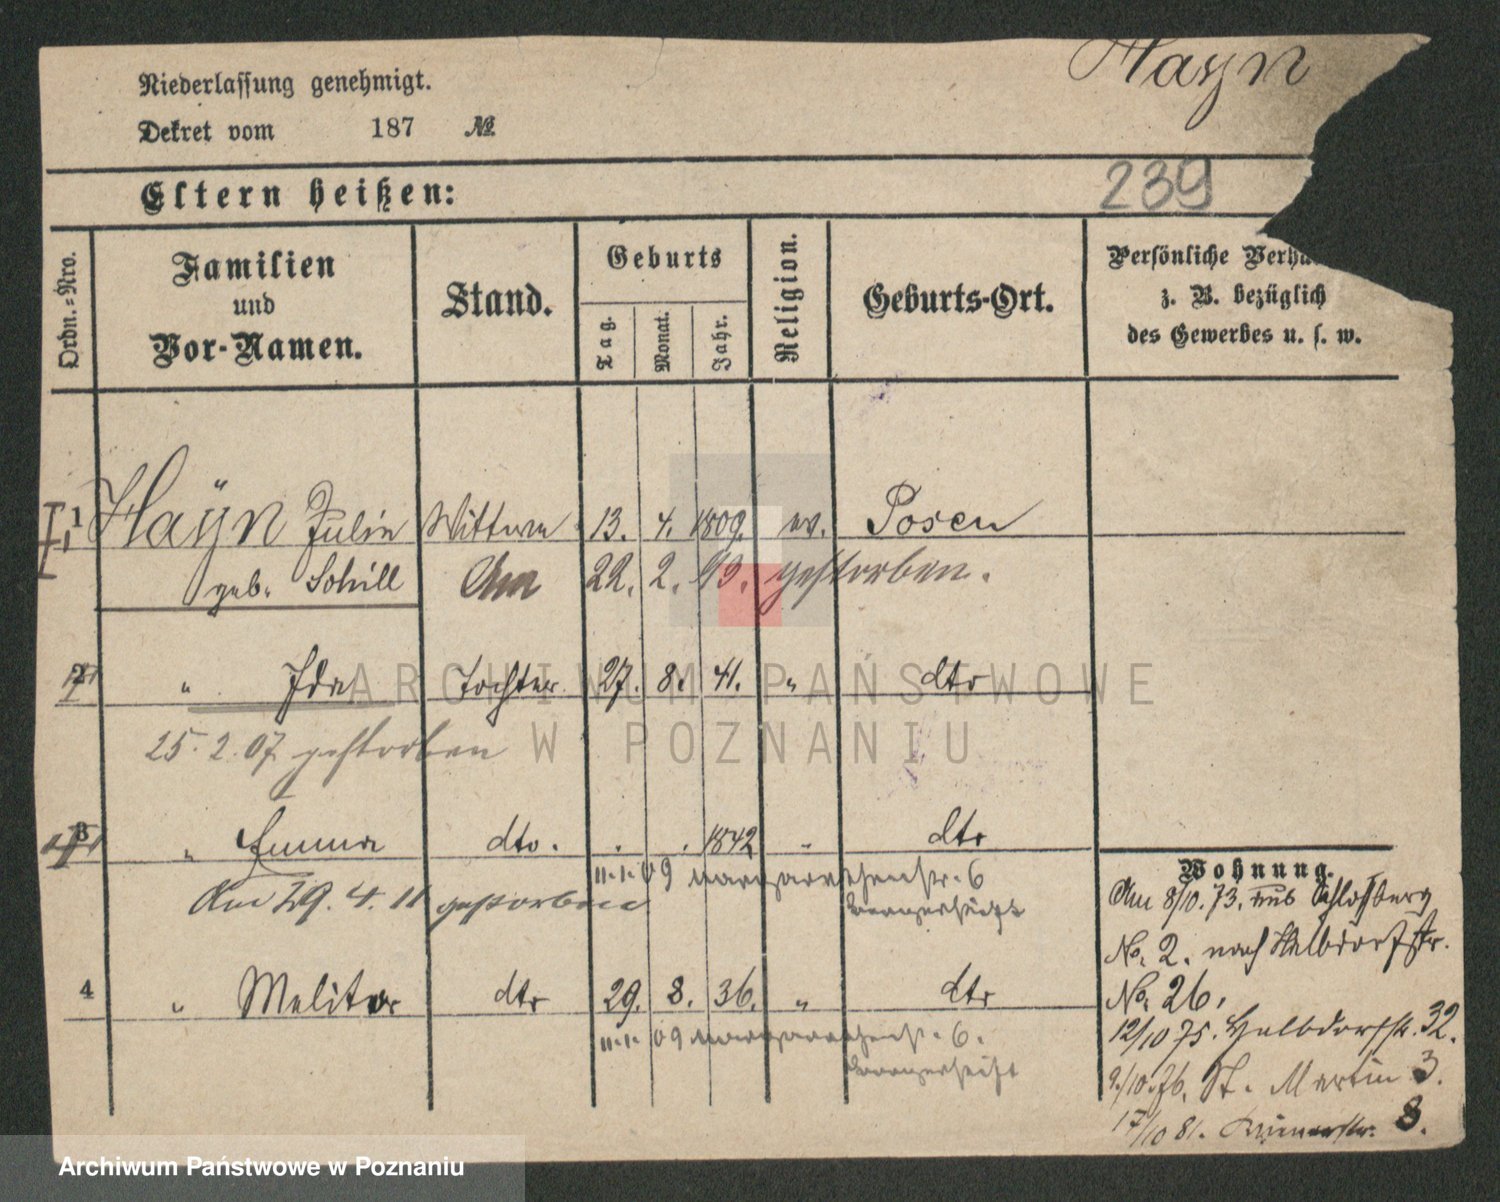 Hayn
Niederlassung genehmigt.
Dekret vom 187 №
239
Eltern heißen:
Ordn.=Nro.
Familien
und
Vor-Namen.
Stand.
Geburts
Tag.
Monat.
Jahr.
Religion.
Geburts-Ort.
Persönliche Verhä
z. B. bezüglich
des Gewerbes u. s. w.
1 Hayn Julie Wittwe 13. 4. 1809. ev. Posen
geb. Schill Am 22. 2. 93. gestorben.
2 " Ida Tochter 27. 8. 41. " dto
25. 2. 07 gestorben
3 " Emma dto. . . 1842 " dto
11.1.09 Margarethenstr. 6
Am 29. 4. 11 gestorben
4 " Melitta dto 29. 8. 36. " dto
11.1.09 Margarethenst. 6.
Wohnung.
Am 8/10. 73. von Schloßberg
No. 2. nach Halbdorfstr.
No. 26.
12/10 75. Halbdorfstr. 32.
9/10. 76. St. Martin 3.
17/10 81. 8.
ARCHIWUM PAŃSTWOWE
W POZNANIU
Archiwum Państwowe w Poznaniu